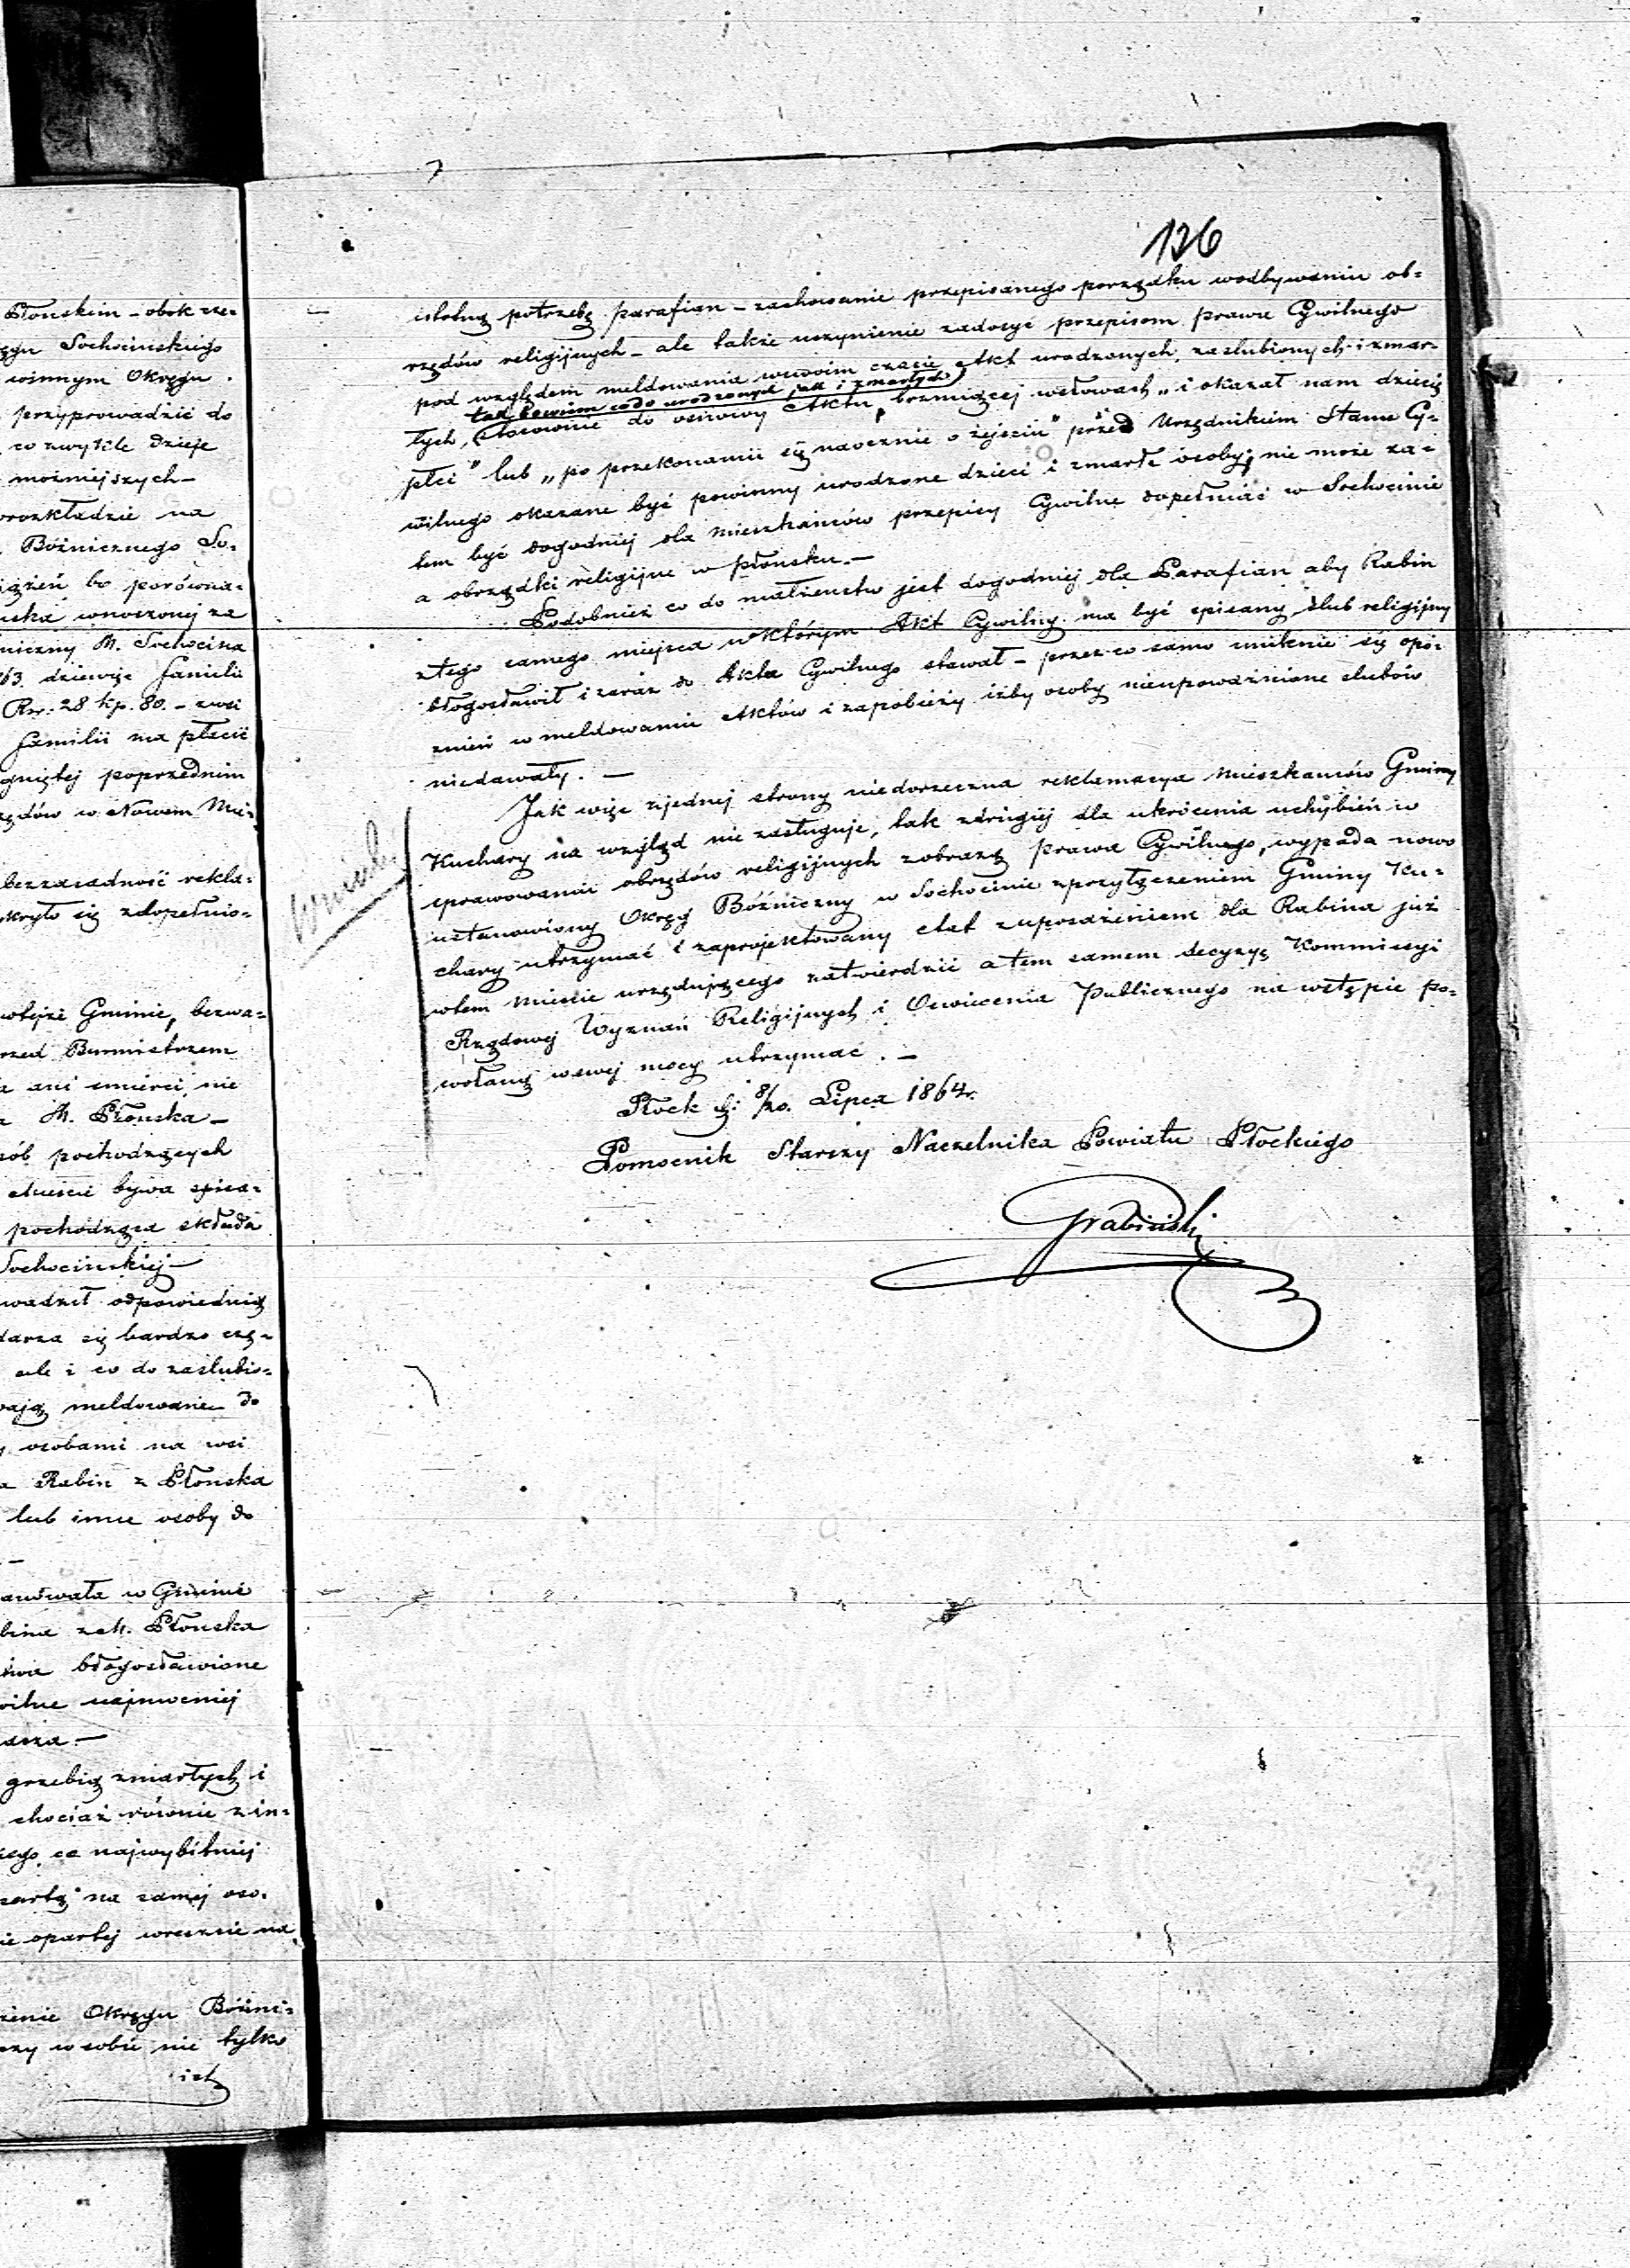 Płońskim – obok cze-
ęgu Sochocińskiego
winnym Okręgu.
przyprowadzić do
co zwykle dzieje
możniejszych –
rozkładzie na
Bóżnicznego So-
bo porówna-
uska wnoszonej za
niczny M. Sochocina
63. dziewięć familii
Rsr. 28 kp. 80. –
familii ma płacić
gniętej poprzednim
zędów w Nowem Mie-
bezzasadność rekla-
kryło się zdopełnio-
wtejże Gminie, bezwa-
rzed Burmistrzem
a ani śmierci, nie
M. Płońska –
sób pochodzących
bywa spisa-
pochodząca składa
Sochocińskiej –
wadził odpowiednią
darza się bardzo czę-
ale i co do zaślubio-
ają meldowanie do
osobami na wsi
a Rabin z Płońska
lub inne osoby do
–
anowała w Gminie
bina z M. Płońska
błogosławione
wilne najmniej
asza –
grzebią zmarłych i
chociaż równie z in-
ego co najwybitniej
zartą na samej oso-
ie opartej wreszcie na
zenie Okręgu Bóżni-
czy w sobie nie tylko
ist
126
istotną potrzebę parafian – zachowanie przepisanego porządku wodbywaniu ob-
rzędów religijnych – ale także uczynienie zadosyć przepisom prawa Cywilnego
pod względem meldowania wswoim czasie Akt urodzonych, zaślubionych i zmar-
tak bowiem codo urodzonych jak i zmarłych
łych, stosownie do osnowy Aktu brzmiącej wsłowach „i okazał nam dziecię
płci" lub „po przekonaniu się naocznie o zejściu" przed Urzędnikiem Stanu Cy-
wilnego okazane być powinny urodzone dzieci i zmarłe osoby; nie może za-
tem być dogodniej dla mieszkańców przepisy Cywilne dopełniać w Sochocinie
a obrządki religijne w Płońsku. –
Podobnież co do małżeństw jest dogodniej dla Parafian aby Rabin
ztego samego miejsca wktórym Akt Cywilny ma być spisany ślub religijny
błogosławił i zaraz do Akta Cywilnego stawał – przez co samo uniknie się opó-
znień w meldowaniu Aktów i zapobieży iżby osoby nieupoważnione slubów
niedawały. –
Jak więc zjednej strony niedorzeczna reklamacya mieszkańców Gminy
Kuchary na wzgląd nie zasługuje, tak zdrugiej dla ukrócenia uchybień w
sprawowaniu obrzędów religijnych zobrazą prawa Cywilnego, wypada nowo
ustanowiony Okręg Bóżniczny w Sochocinie zprzyłączeniem Gminy Ku-
chary utrzymać i zaprojektowany etat zuposażeniem dla Rabina już
wtem mieście urzędującego zatwierdzić a tem samem decyzyę Kommissyi
Rządowej Wyznań Religijnych i Oświecenia Publicznego na wstępie po-
wołaną wswej mocy utrzymać. –
Płock d: 8/20. Lipca 1864 r.
Pomocnik Starszy Naczelnika Powiatu Płockiego
Grabiński